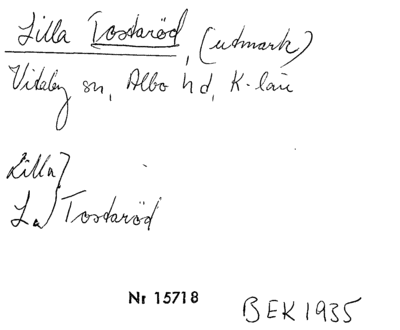 Lilla Tostaröd, (utmark)
Vitaby sn, Albo hd, K-län
Lilla}
La} Tostaröd
Nr 15718 BEK 1935